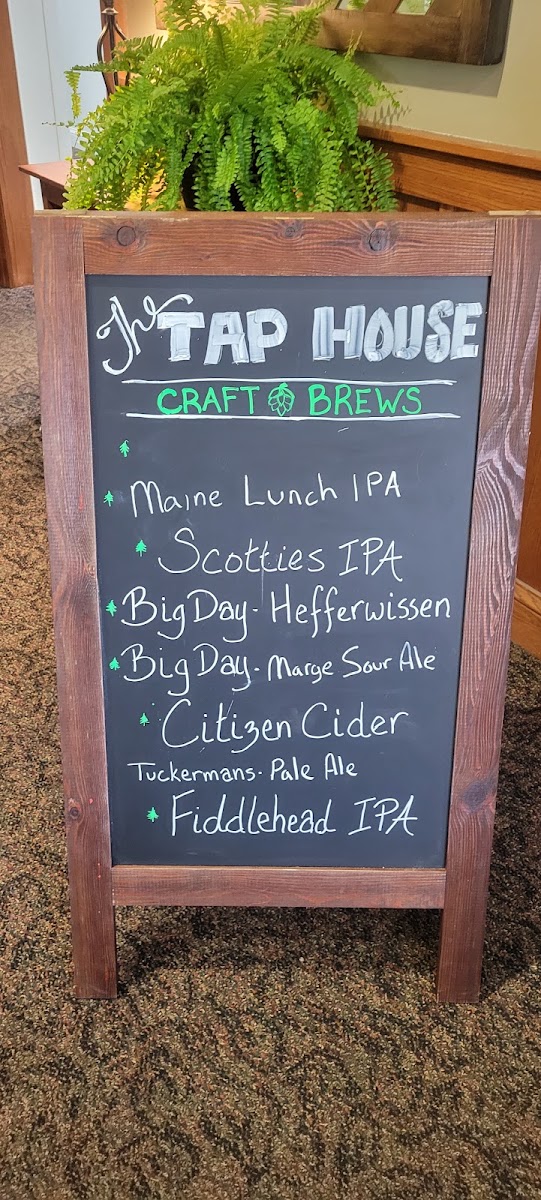 The TAP HOUSE
CRAFT BREWS
Maine Lunch IPA
Scotties IPA
Big Day - Hefferwissen
Big Day - Marge Sour Ale
Citizen Cider
Tuckermans - Pale Ale
Fiddlehead IPA